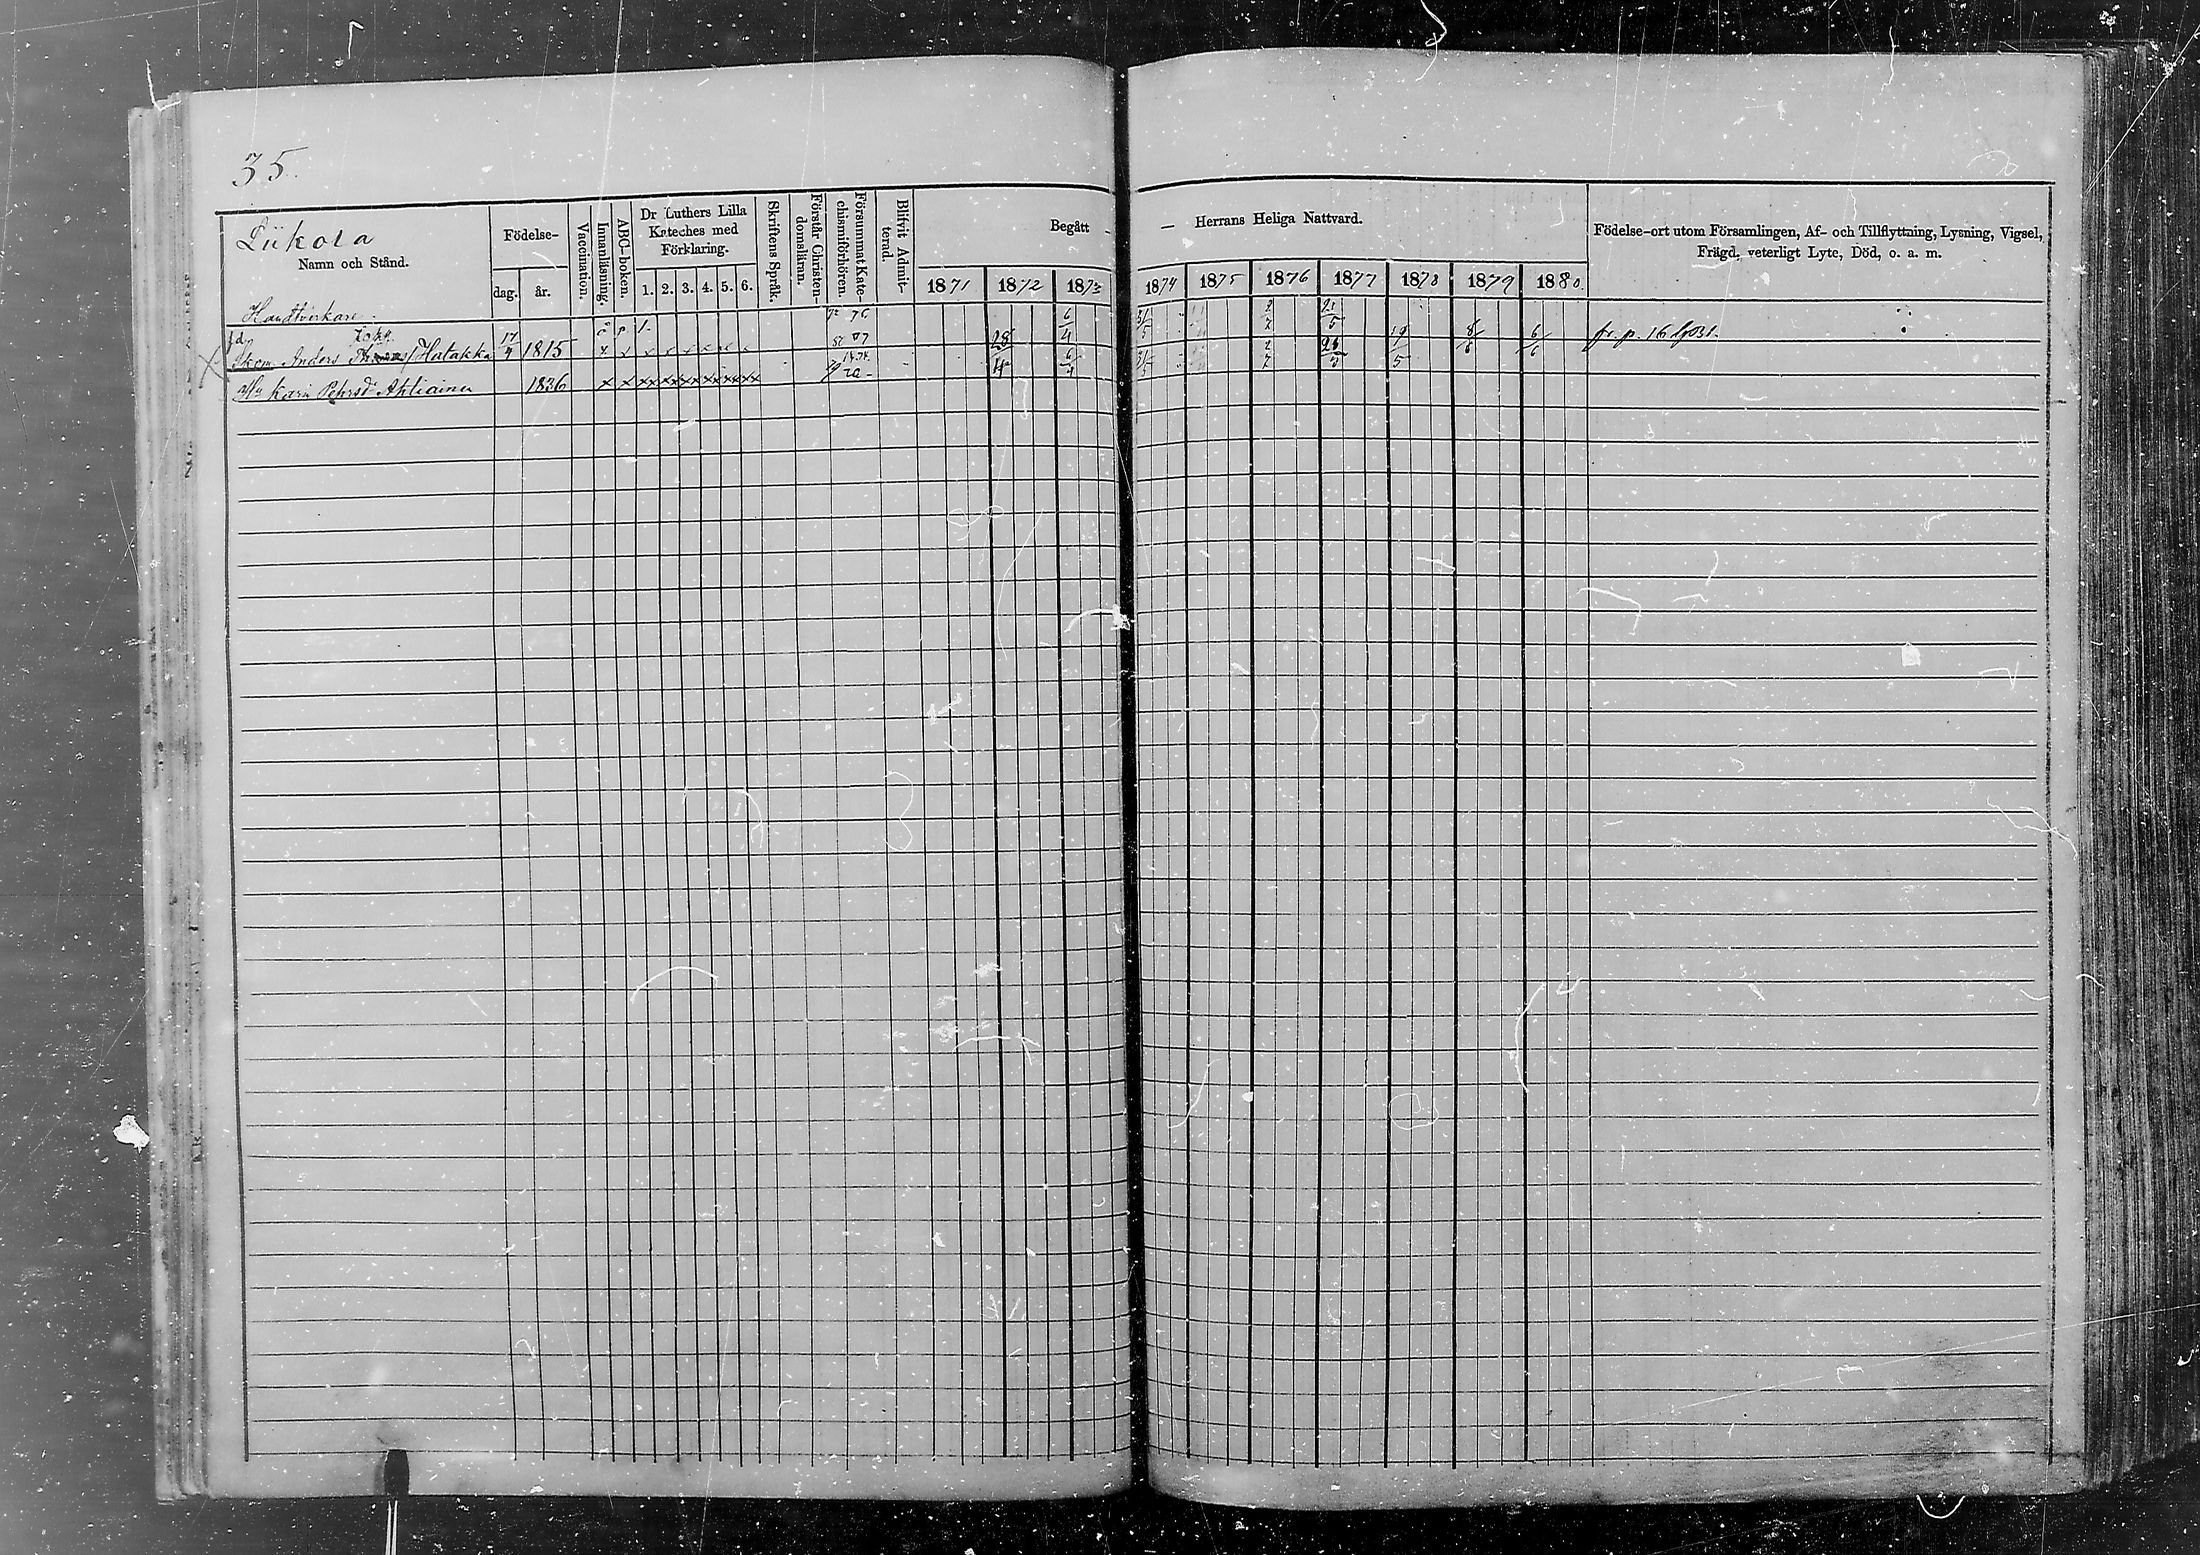 35.
Liikola
Namn och Stånd.
Födelse-
dag. år.
Vaccination.
Innanläsning.
ABC-boken.
Dr Luthers Lilla
Kateches med
Förklaring.
1. 2. 3. 4. 5. 6.
Skriftens Språk.
Förstår Christen-
domsläran.
Försummat Kate-
chismiförhören.
Blifvit Admit-
terad.
Begått — Herrans Heliga Nattvard.
1871 1872 1873 1874 1875 1876 1877 1878 1879 1880.
Födelse-ort utom Församlingen, Af- och Tillflyttning, Lysning, Vigsel,
Frägd, veterligt Lyte, Död, o. a. m.
Handtverkare.
Skom. Anders Hatakka 17/4 1815 x x x x x x x x 6/4 31/5 2/7 19/5 8/6 6/6 fr. p. 16
H:u Karin Pehrsdr Ahliainen 1836 x x xx xx xx xx xx xx 6/4 31/5 2/7